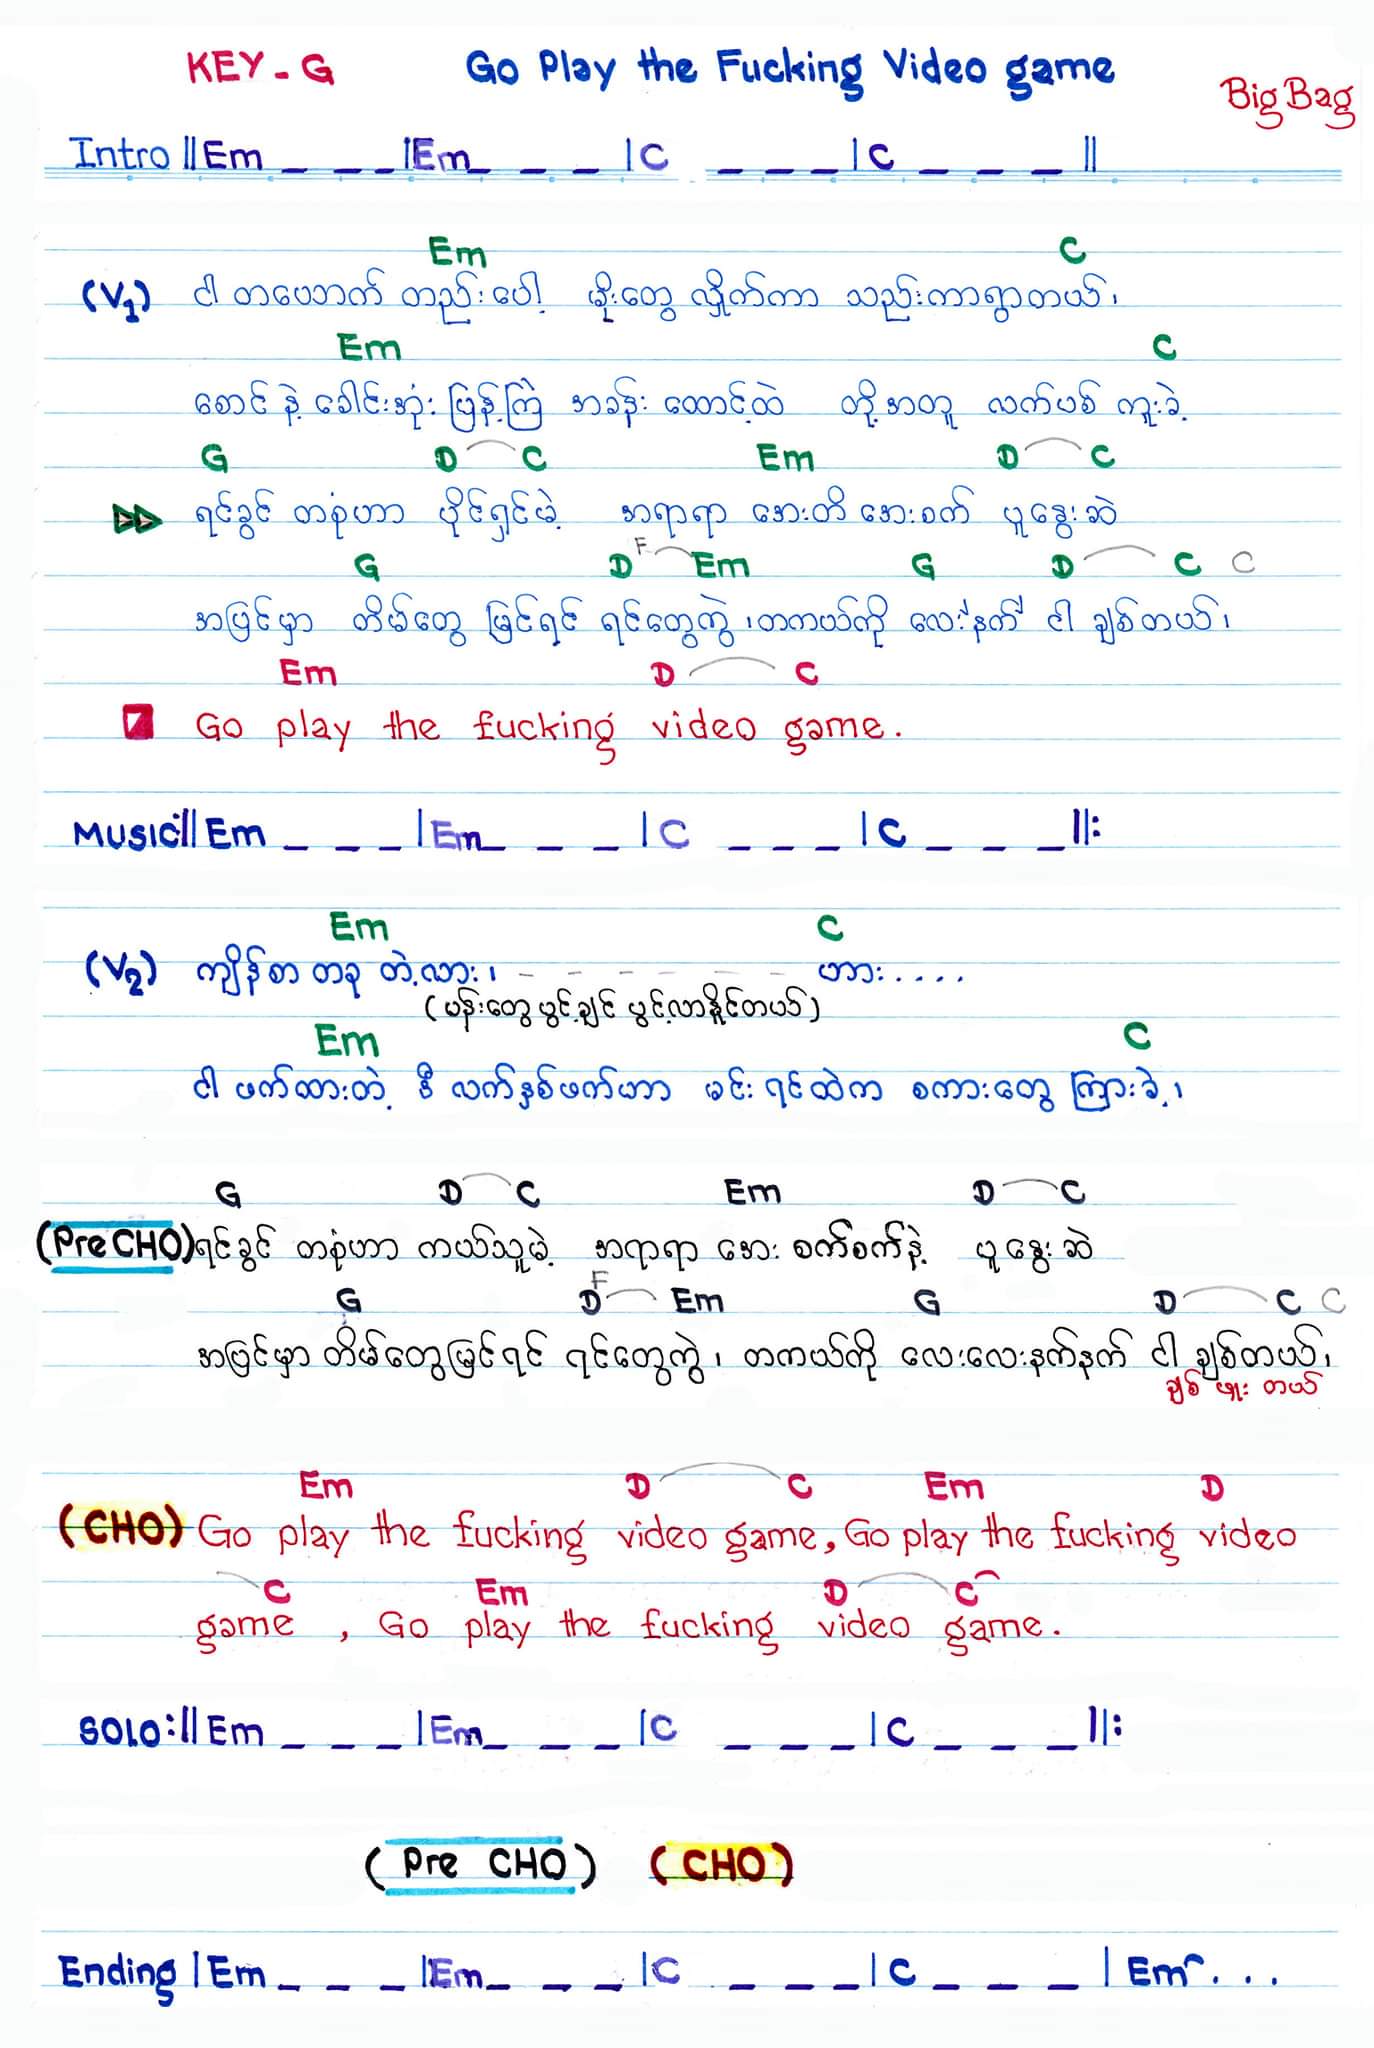 KEY - G Go Play the Fucking Video game
Big Bag
Intro || Em _ _ _ | Em _ _ _ | C _ _ _ | C _ _ _ ||
Em C
(V1) ငါ တယောက် တည်းပေါ့ မိုးတွေ လှိုက်ကာ သည်းကာရွာတယ်၊
Em C
စောင် နဲ့ ခေါင်းအုံး ပြန့်ကြဲ အခန်း ထောင့်ထဲ တို့အတူ လက်ပစ် ကူးခဲ့
G D C Em D C
ရင်ခွင် တစုံဟာ ပိုင်ရှင်မဲ့ အရာရာ အေးတိ အေးစက် ပူနွေးဆဲ
G D F Em G D C C
အပြင်မှာ တိမ်တွေ မြင်ရင် ရင်တွေကွဲ ၊ တကယ်ကို လေးနက် ငါ ချစ်တယ်၊
Em D C
Go play the fucking video game.
MUSIC:|| Em _ _ _ | Em _ _ _ | C _ _ _ | C _ _ _ ||:
Em C
(V2) ကျိန်စာ တခု တဲ့လား၊ - - - - - - ဟား....
(ပန်းတွေ ပွင့်ချင် ပွင့်လာနိုင်တယ်)
Em C
ငါ ဖက်ထားတဲ့ ဒီ လက်နှစ်ဖက်ဟာ မင်း ရင်ထဲက စကားတွေ ကြားခဲ့၊
G D C Em D C
(Pre CHO) ရင်ခွင် တစုံဟာ ကယ်သူမဲ့ အရာရာ အေး စက်စက်နဲ့ ပူနွေးဆဲ
G D F Em G D C C
အပြင်မှာ တိမ်တွေမြင်ရင် ရင်တွေကွဲ၊ တကယ်ကို လေးလေးနက်နက် ငါ ချစ်တယ်၊
ချစ် ဖူး တယ်
Em D C Em D
(CHO) Go play the fucking video game, Go play the fucking video
C Em D C
game , Go play the fucking video game.
SOLO:|| Em _ _ _ | Em _ _ _ | C _ _ _ | C _ _ _ ||:
(Pre CHO) (CHO)
Ending | Em _ _ _ | Em _ _ _ | C _ _ _ | C _ _ _ | Em ...